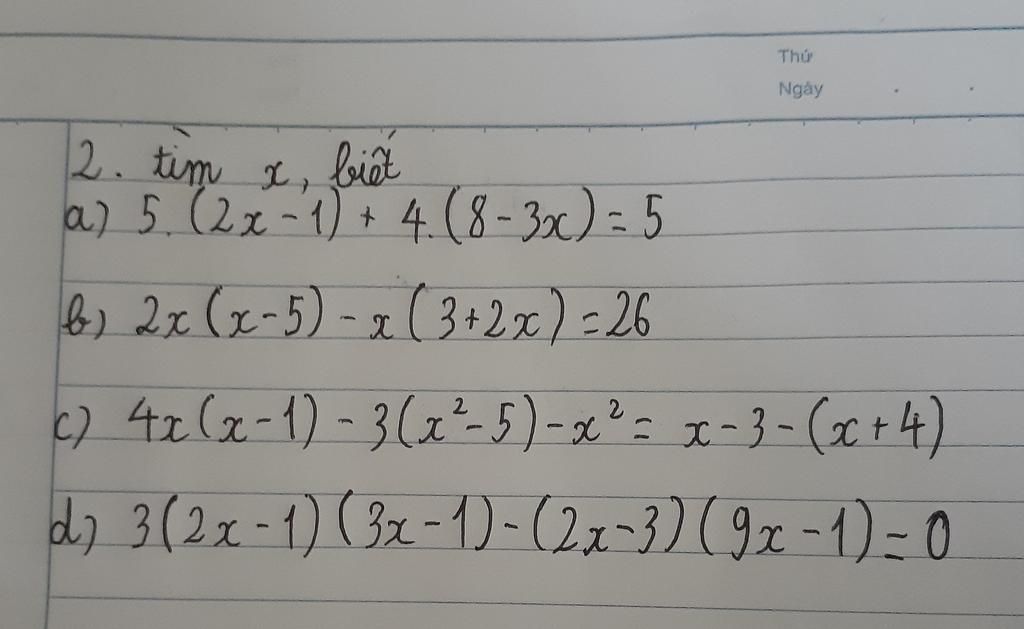 Thứ
Ngày
2. tìm x, biết
a) 5.(2x-1) + 4.(8-3x) = 5
b) 2x(x-5) - x(3+2x) = 26
c) 4x(x-1) - 3(x²-5) - x² = x-3-(x+4)
d) 3(2x-1)(3x-1) - (2x-3)(9x-1) = 0